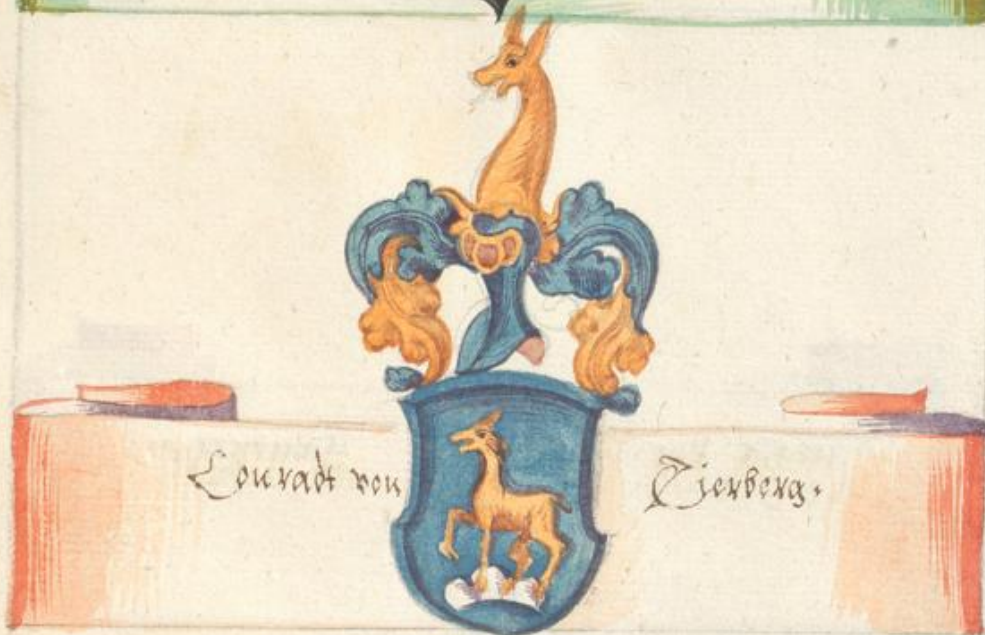 Conradt von Tierberg.